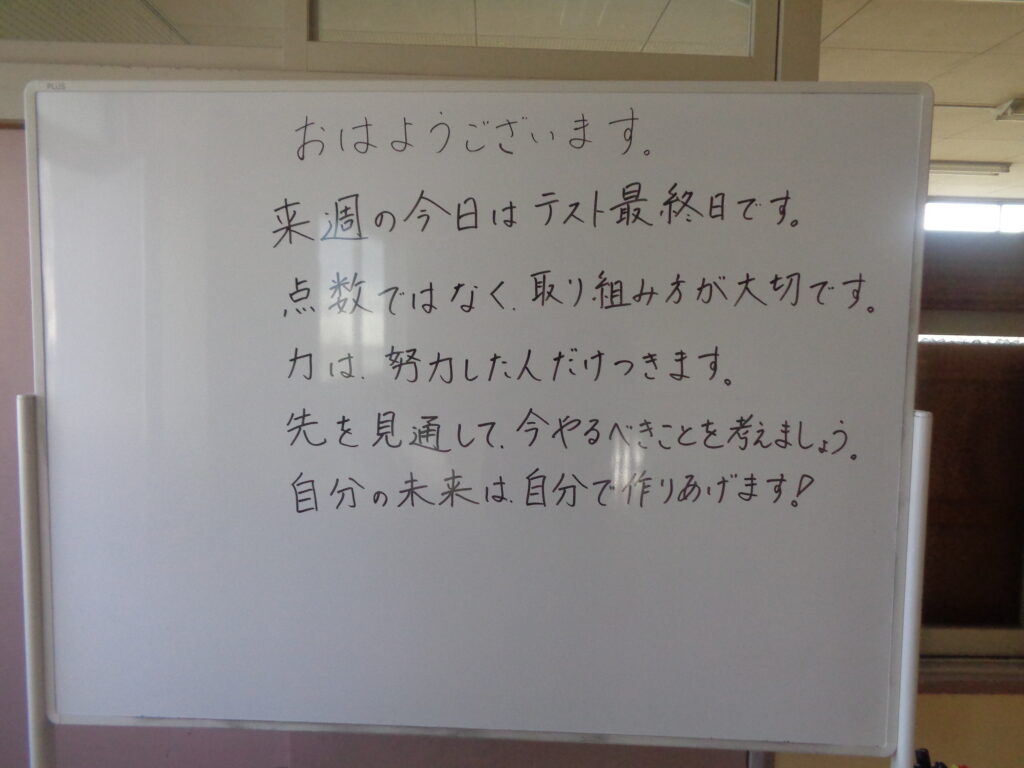 PLUS
おはようございます。
来週の今日はテスト最終日です。
点数ではなく、取り組み方が大切です。
力は、努力した人だけつきます。
先を見通して、今やるべきことを考えましょう。
自分の未来は、自分で作りあげます!